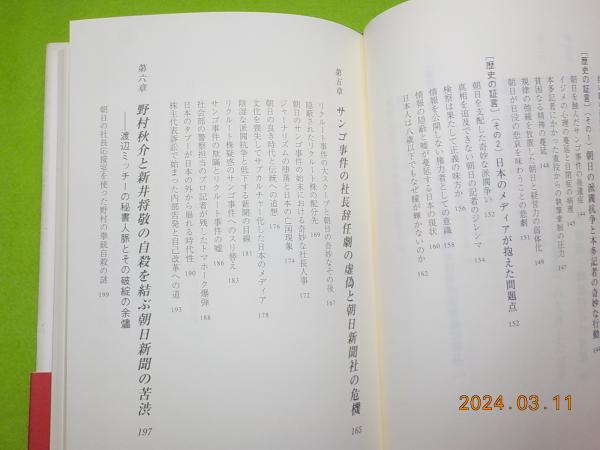 [歴史の証言]（その1）朝日の派閥抗争と本多記者の奇妙な行動 144
朝日を蝕んだサンゴ事件の後遺症
イジメの心理の蔓延と自閉症の病理
本多記者にかかった重役からの執筆規制の圧力
貧困なる精神の蔓延 148
規律の弛緩を放置した朝日と経営力の弱体化
朝日が日没の悲哀を味わうことの悲劇 151
[歴史の証言]（その2）日本のメディアが抱えた問題点 152
朝日を支配した奇妙な派閥争い
真相を追及できない朝日の記者のジレンマ 154
検察は果たして正義の味方か 156
情報を公開しない権力者としての意識 158
情報の隠蔽と嘘が蔓延する日本の現状 160
日本人は八歳以下でもなぜ瞳が輝かないのか 162
第五章 サンゴ事件の社長辞任劇の虚偽と朝日新聞社の危機 165
リクルート事件の大スクープと朝日の奇妙なその後 167
隠蔽されたリクルート株の配分先 169
朝日のサンゴ事件の始末における奇妙な社長人事 172
ジャーナリズムの堕落と日本の亡国現象 174
朝日の良き時代と伝統への追想 176
文化を喪失してサブカルチャー化した日本のメディア 178
陰湿な派閥抗争と低下する新聞の目線 181
リクルート株疑惑のサンゴ事件へのスリ替え 183
サンゴ事件の欺瞞とリクルート事件の嘘 186
社会部の警察担当のプロ記者が残したトマホーク爆弾 188
日本のタブーが日本の外から崩れる時代性 190
株主代表訴訟で始まった内部告発と自己改革への道 193
第六章 野村秋介と新井将敬の自殺を結ぶ朝日新聞の苦渋 197
――渡辺ミッチーの秘書人脈とその破綻の余燼
朝日の社長応接室を使った野村の拳銃自殺の謎 199
2024.03.11